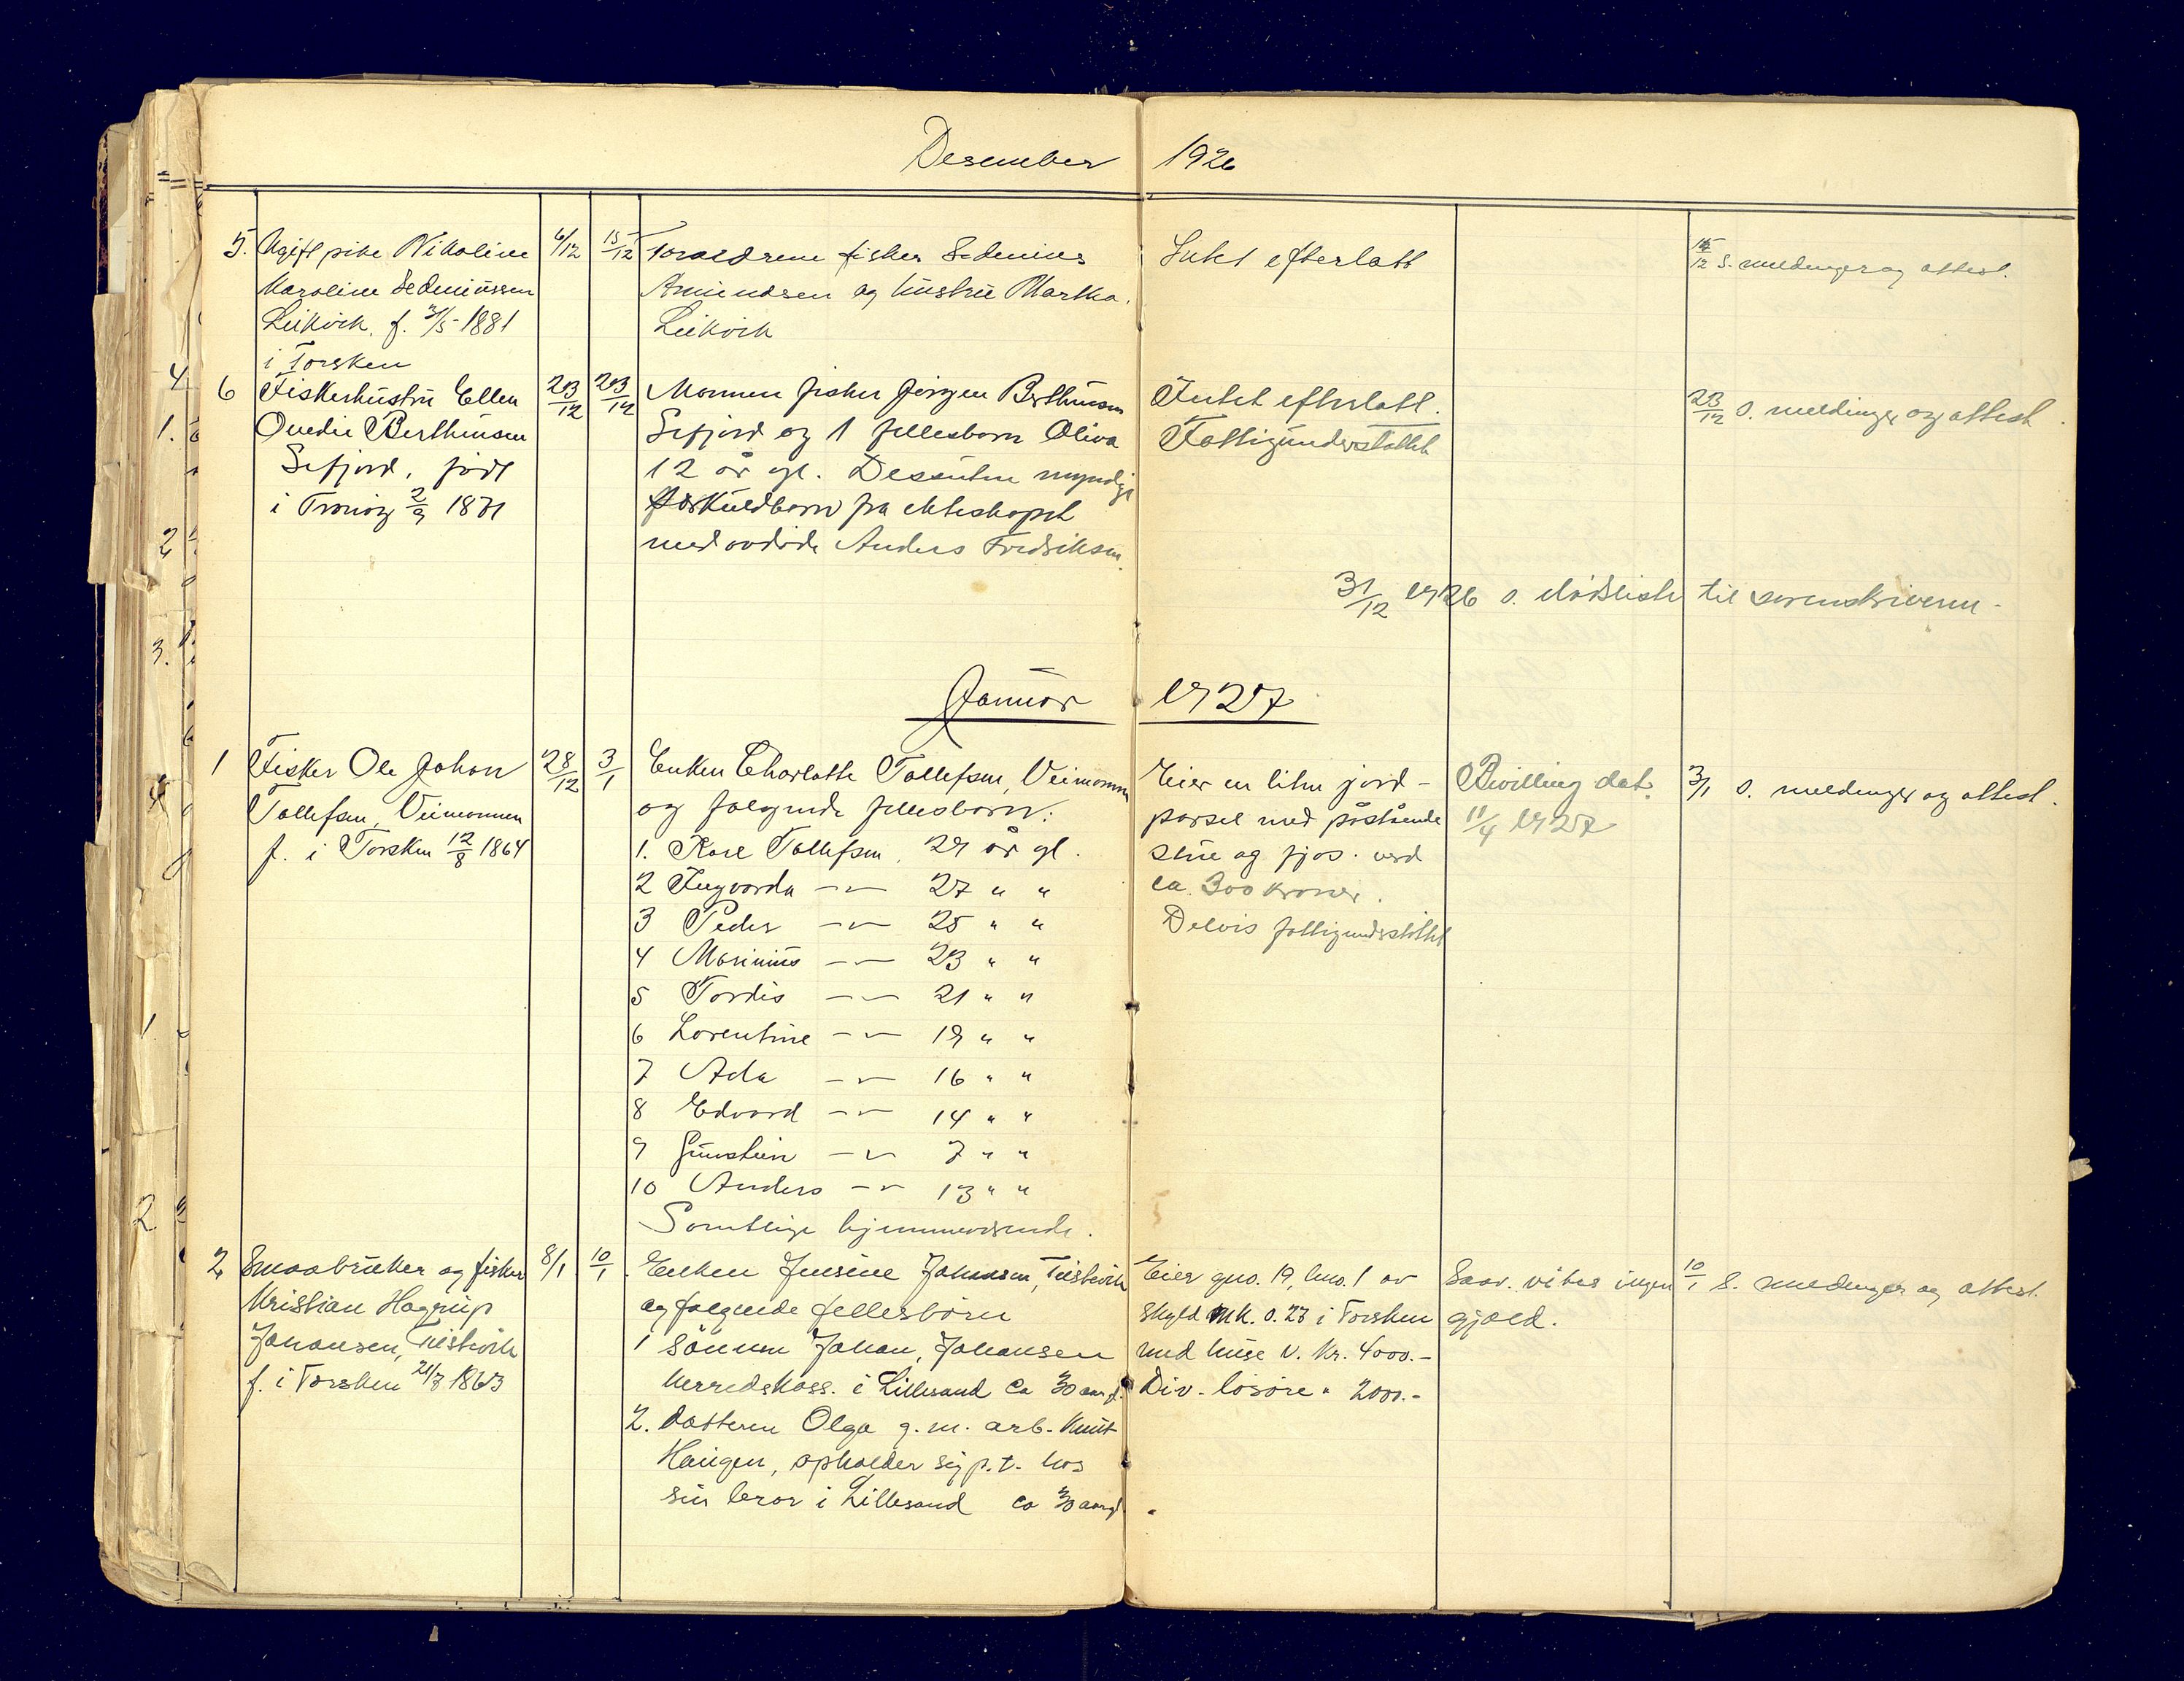 Desember 1926
5. Ugift pike Nikoline 6/12 15/12 Foraeldrene fisker Sedenius Intet efterlatt 15/12 s. meldinger og attest.
Karoline Sedeniussen Amundsen og hustru Martha.
Leikvik, f. /5-1881 Leikvik
i Torsken
6 Fiskerhustru Ellen 23/12 23/12 Mannen fisker Jørgen Berthinsen Intet efterlatt. 23/12 s. meldinger og attest.
Ovedie Berthinsen Sifjord og 1 fellesbarn Oliva Fattigunderstøttet
Sifjord, født 12 år gl. Dessuten myndige
i Tranøy 2/9 1871 særkuldbarn fra ekteskapet
med avdøde Anders Fredriksen.
31/12 1926 s. dødsliste til sorenskriveren.
Januar 1927
1 Fisker Ole Johan 28/12 3/1 Enken Charlotte Tollefsen, Veimannen Eier en liten jord- Bevilling dat. 3/1 s. meldinger og attest.
Tollefsen, Veimannen og følgende fellesbarn: parsel med påstående 11/4 1927
f. i Torsken 12/8 1864 1. Kare Tollefsen, 29 år gl. stue og fjøs. verd
2 Ingvarda -"- 27 " " ca. 300 kroner.
3 Peder -"- 25 " " Delvis fattigunderstøttet
4 Marinius -"- 23 " "
5 Tordis -"- 21 " "
6 Lorentine -"- 19 " "
7 Ada -"- 16 " "
8 Edvard -"- 14 " "
9 Gunstein -"- 7 " "
10 Anders -"- 13 " "
Samtlige hjemmeværende.
2 Smaabruker og fisker 8/1 10/1 Enken Jensine Johansen, Teistevik Eier gno. 19, bno. 1 av Saav. vites ingen 10/1 s. meldinger og attest.
Kristian Hagrup og følgende fellesbørn skyld mk. 0.27 i Torsken gjæld.
Johansen, Teistevik 1 Sønnen Johan, Johansen med huse v. kr. 4000.-
f. i Torsken 21/8 1863 herredskass. i Lillesand ca 30 aar gl. Div. løsøre " 2000.-
2. datteren Olga g.m. arb. Knut
Haugen, opholder sig p.t. hos
sin bror i Lillesand ca 30 aar gl.